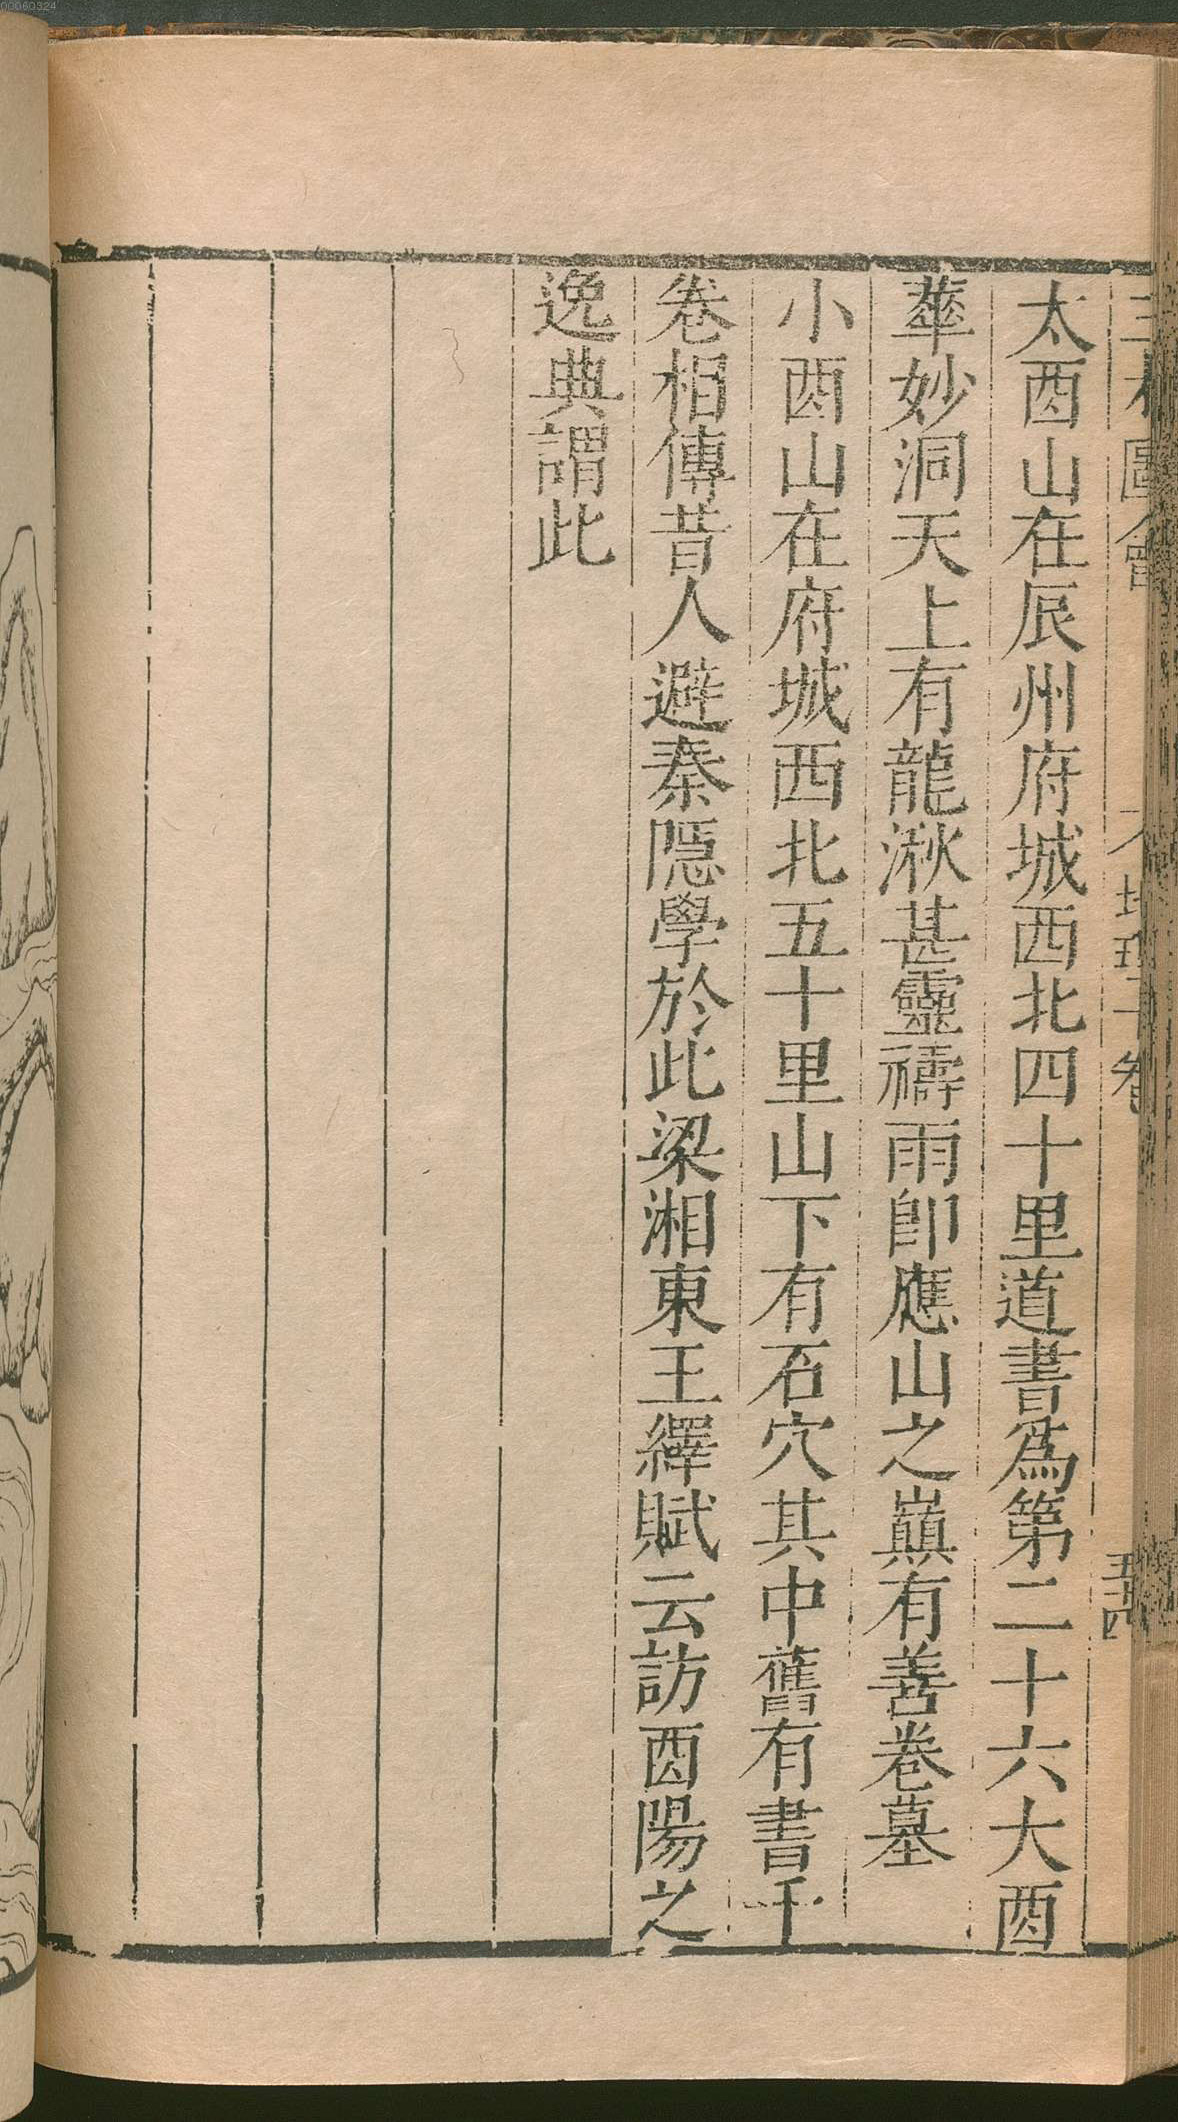 三才圖會
地理十卷
五十四
太酉山在辰州府城西北四十里道書爲第二十六大酉
華妙洞天上有龍湫甚靈禱雨卽應山之巔有善卷墓
小酉山在府城西北五十里山下有石穴其中舊有書千
卷相傳昔人避秦隱學於此梁湘東王繹賦云訪酉陽之
逸典謂此
00060324